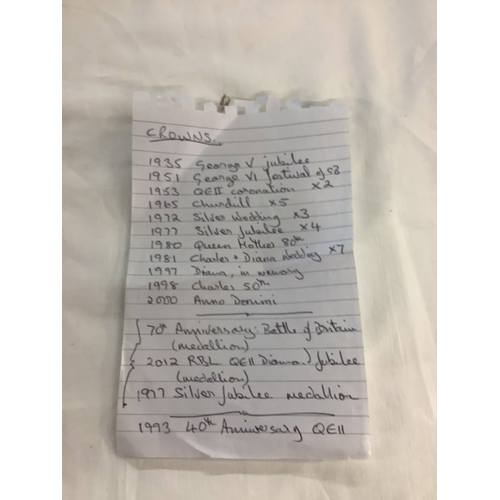 CROWNS.
1935 George V jubilee
1951 George VI festival of
1953 QEII coronation x2
1965 Churchill x5
1972 Silver Wedding x3
1977 Silver Jubilee x4
1980 Queen Mother 80th
1981 Charles + Diana Wedding x7
1997 Diana, in memory
1998 Charles 50th
2000 Anno Domini
70th Anniversary: Battle of Britain
(medallion)
2012 RBL QEII Diamd. Jubilee
(medallion)
1977 Silver Jubilee medallion
1993 40th Anniversary QEII